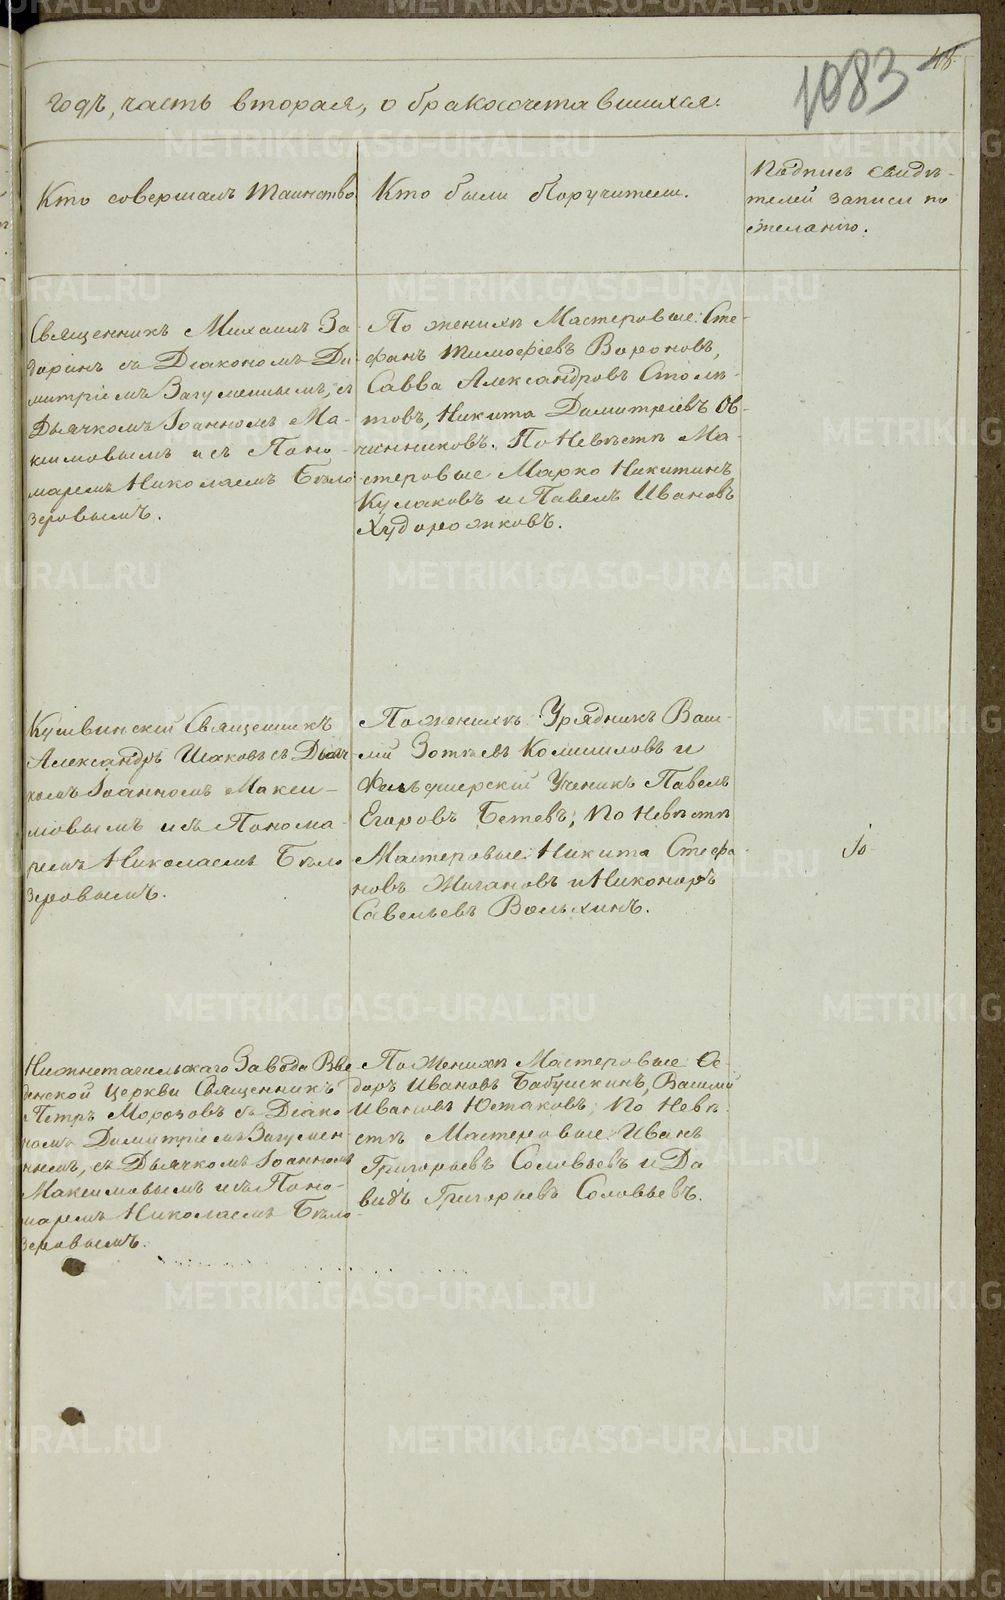 48.
1083
годъ, часть вторая, о бракосочетавшихся:
Кто совершалъ таинство.
Кто были Поручители.
Подпись свидѣ-
телей записи по
желанію.
Священникъ Михаилъ За-
съ Діакономъ Ди-
митріемъ Загуменнымъ, съ
Дьячкомъ Іоанномъ Ма-
ксимовымъ и съ Поно-
маремъ Николаемъ Бѣло
зеровымъ.
По женихѣ Мастеровые: Сте-
фанъ Тимофѣевъ Вороновъ,
Савва Александровъ Столѣ-
товъ, Никита Димитріевъ Ов-
чинниковъ. По Невѣстѣ Ма-
стеровые Марко Никитинъ
Кулаковъ и Павелъ Ивановъ
Худорожковъ.
Кушвинскій Священникъ
Александръ съ Дьяч
комъ Іоанномъ Макси-
мовымъ и съ Понома-
ремъ Николаемъ Бѣло
зеровымъ.
По женихѣ: Урядникъ Васи-
лій Зотѣевъ и
Фельдшерскій Ученикъ Павелъ
Егоровъ Бетевъ; по Невѣстѣ
Мастеровые: Никита Стефа-
новъ Жигановъ и Никоноръ
Савельевъ Волыхинъ.
Нижнетагильскаго Завода Вве
денской Церкви Священникъ
Петръ Морозовъ съ Діако
номъ Димитріемъ Загумен-
нымъ, съ Дьячкомъ Іоанномъ
Максимовымъ и съ Поно-
маремъ Николаемъ Бѣло-
зеровымъ.
По Женихѣ Мастеровые: Ѳе-
доръ Ивановъ Бабушкинъ, Василій
Ивановъ Юсаковъ; по Невѣ-
стѣ Мастеровые: Иванъ
Григорьевъ Соловьевъ и Да
видъ Григорьевъ Соловьевъ.
METRIKI.GASO-URAL.RU